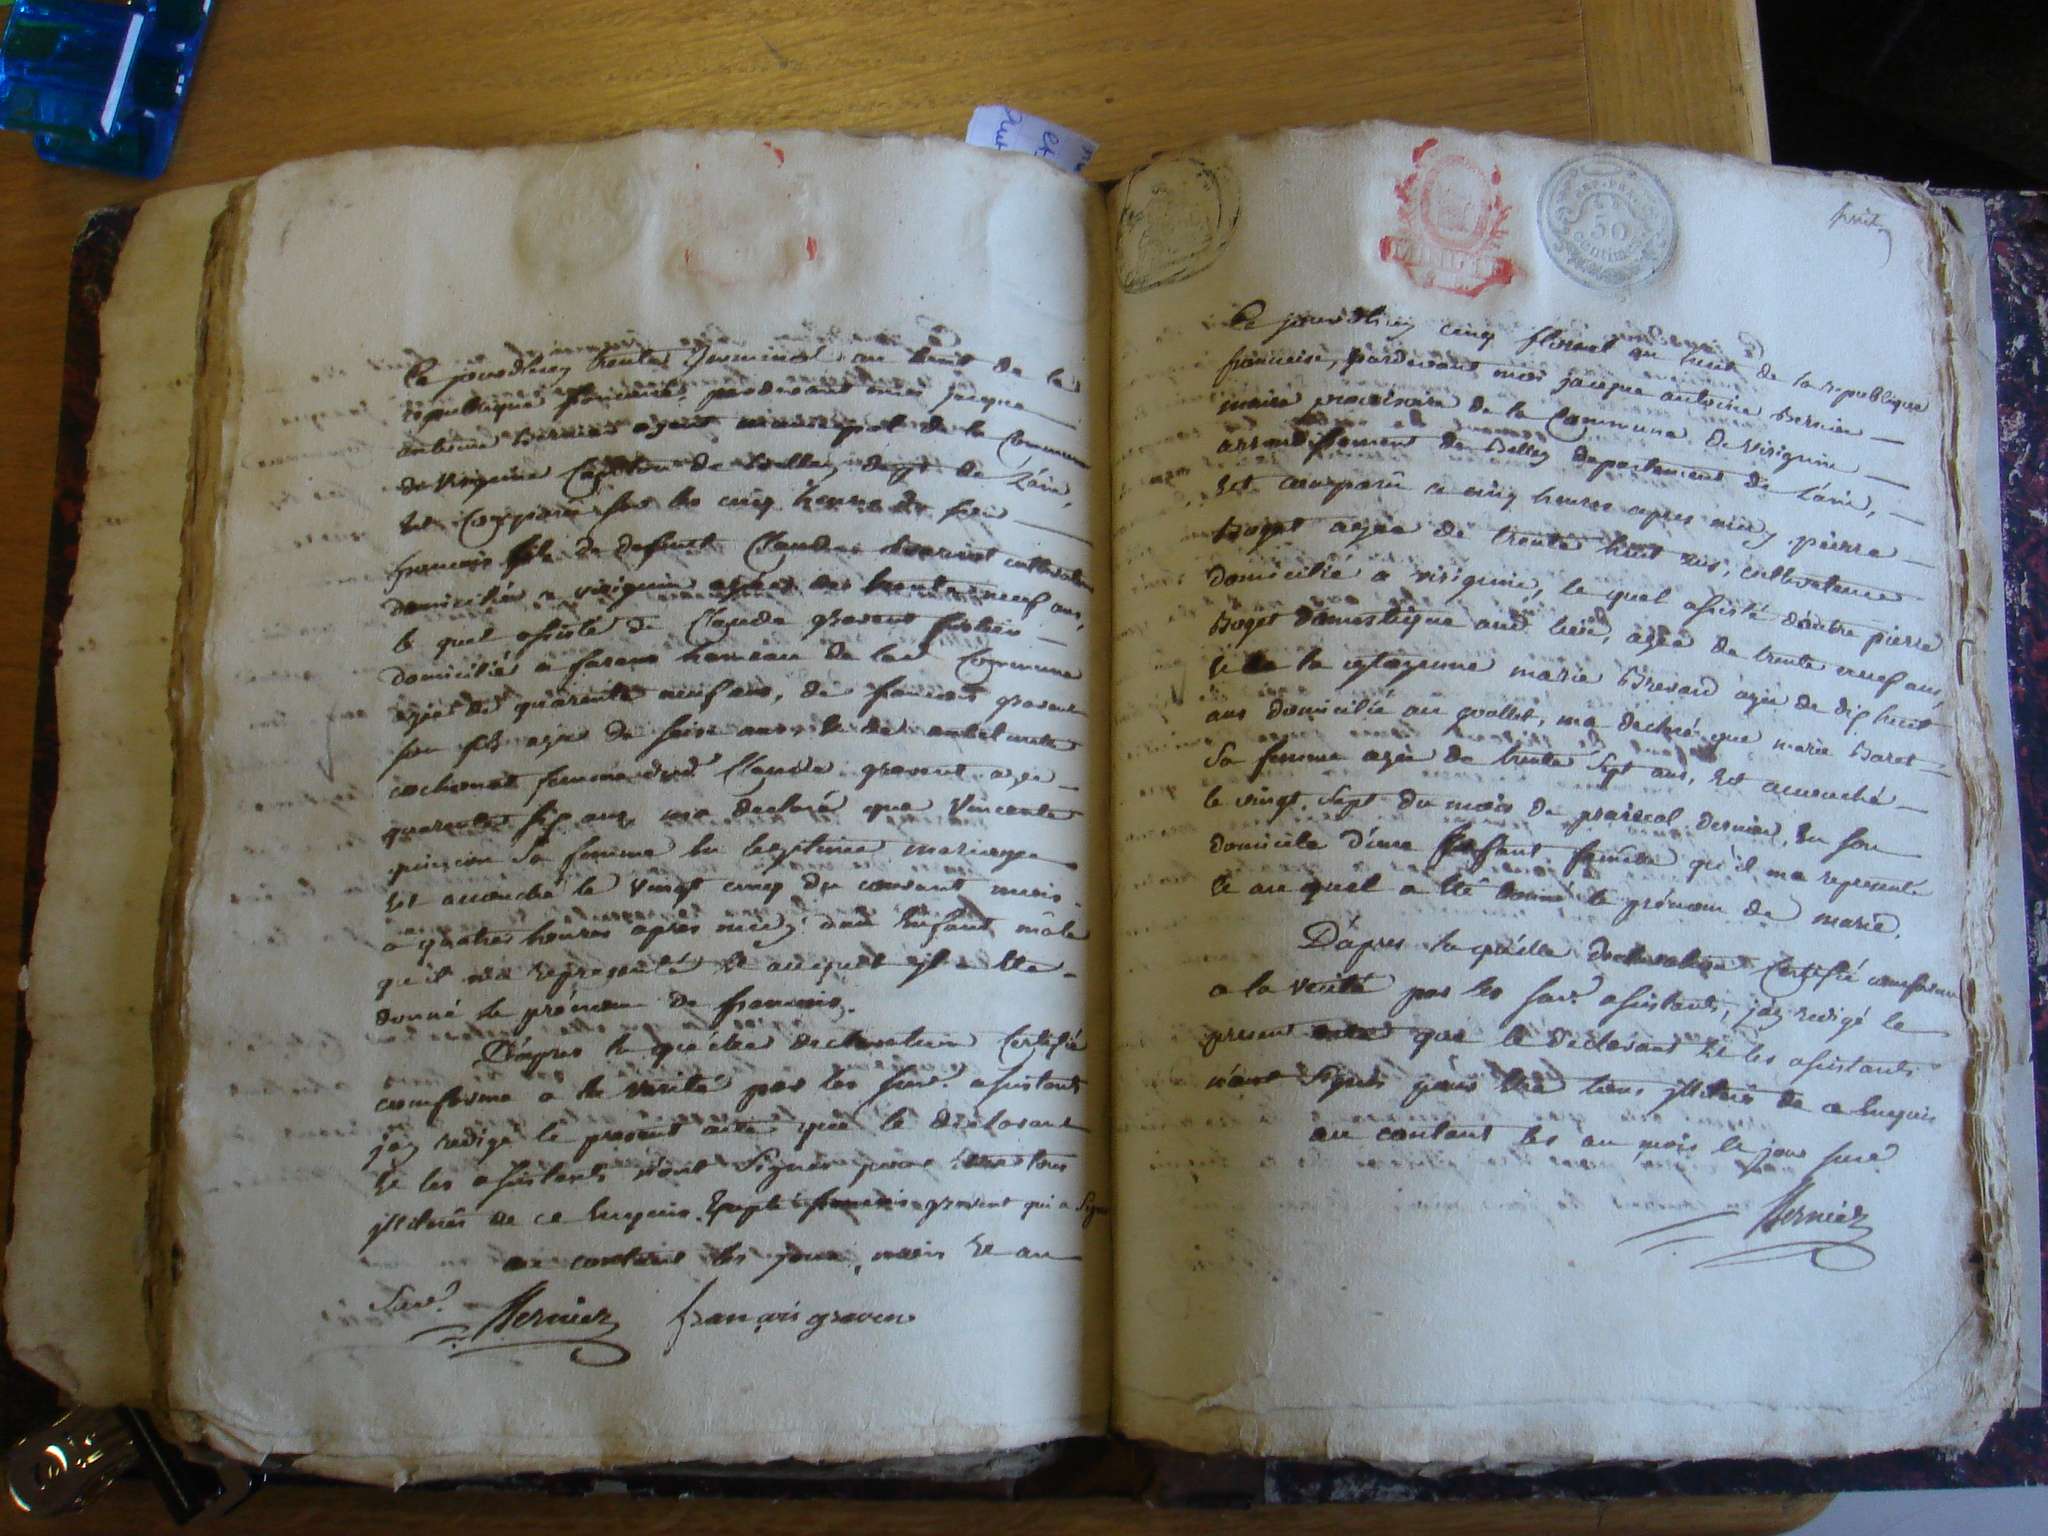 Ce jourdhuy trente Germinal an huit de la
republique francaise, pardevant moi jacque
antoine Bernier agent municipal de la Commune
de Virignin Canton de Belley dept de L'ain,
Est Comparu sur les cinq heures du soir
francois fils de defunt Claude cultivateur
domicilié a virignin agé de trente neuf ans,
le quel assisté de Claude gravent
domicilié a hameau de lad. Commune
agée de quarente neuf ans, de francois gravent
son fils agée de seise ans et de
cochonat femme dud. Claude gravent agée
quarente six ans, ma declaré que Vincente
sa femme En legitime mariage
Est accouché le Vingt cinq du courant mois
a quatres heures apres midy d'un Enfant mâle
qu'il ma representé Et auquel il a Eté
donné le prénom de francois.
D'apres la quelle declaration Certifié
conforme a la verité par les sus.d assistants
j'ay redigé le present acte que le déclarant
Et les assistants n'ont Signés pour Etre tous
jllitérés de ce Enquis Excepté francois gravent qui a Signé
au contant les jour, mois Et an
Susd. Bernier françois graven
huit
50
centimes
Ce jourdhuy cinq floreal an huit de la republique
francaise, pardevant moi jacque antoine Bernier
maire provisoire de la Commune de virignin
arrondissement de Belley departement de L'ain,
Est comparû a cinq heures apres midy pierre
Boget agée de trente huit ans, cultivateur
domicilié a virignin, le quel assisté d'autre pierre
Boget domestique aud. lieu, agée de trente neuf ans,
Et de la citoyenne marie Brevard agée de dix huit
ans domicilié au , ma declaré que marie
Sa femme agée de trente Sept ans, Est accouché
le vingt Sept du mois de dernier, En son
domicile d'une Enfant femelle qu'il ma representé
Et au quel a Eté donné le prénom de marie.
D'apres la quelle declaration Certifié conforme
a la verité par les sus.d assistants, j'ay redigé le
present acte que le déclarant Et les assistants
n'ont Signés pour Etre tous jllitérés de ce Enquis
au contant les an mois le jour susd.
Bernier